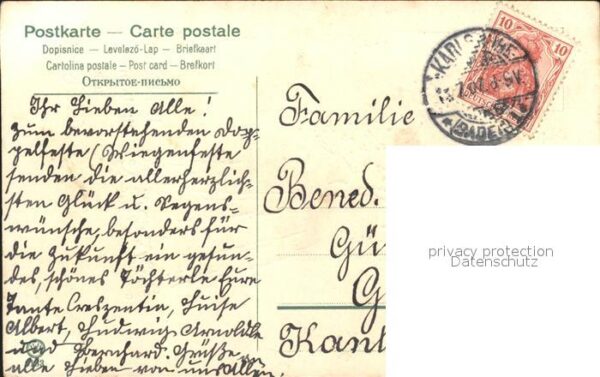 Postkarte — Carte postale
Dopisnice — Levelező-Lap — Briefkaart
Cartolina postale — Post card — Brefkort
Открытое-письмо
10 10
KARLSRUHE
BADEN
Ihr Lieben Alle!
zum bevorstehenden Dop=
pelfeste (Wiegenfeste
senden die allerherzlich=
sten Glück u. Segens=
wünsche, besonders für
die Zukunft ein gesun=
des, schönes Töchterle Eure
Tante Creszentia, Luise
Albert, Ludwig Arnoldle
und Bernhard. Grüße an
alle Lieben von uns Allen.
Familie
Bened.
Gü
G
Kant
privacy protection
Datenschutz